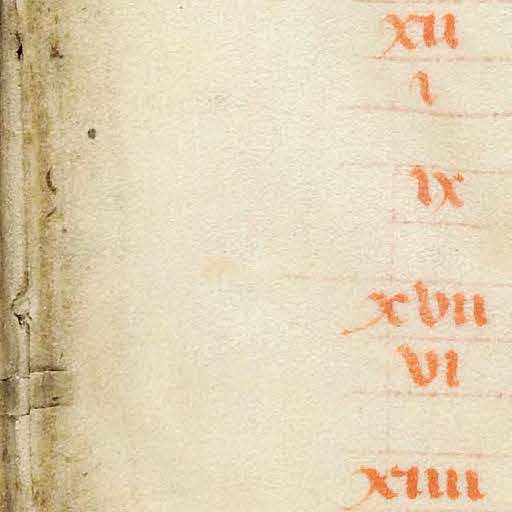 xii
i
ix
xvii
vi
xiiii